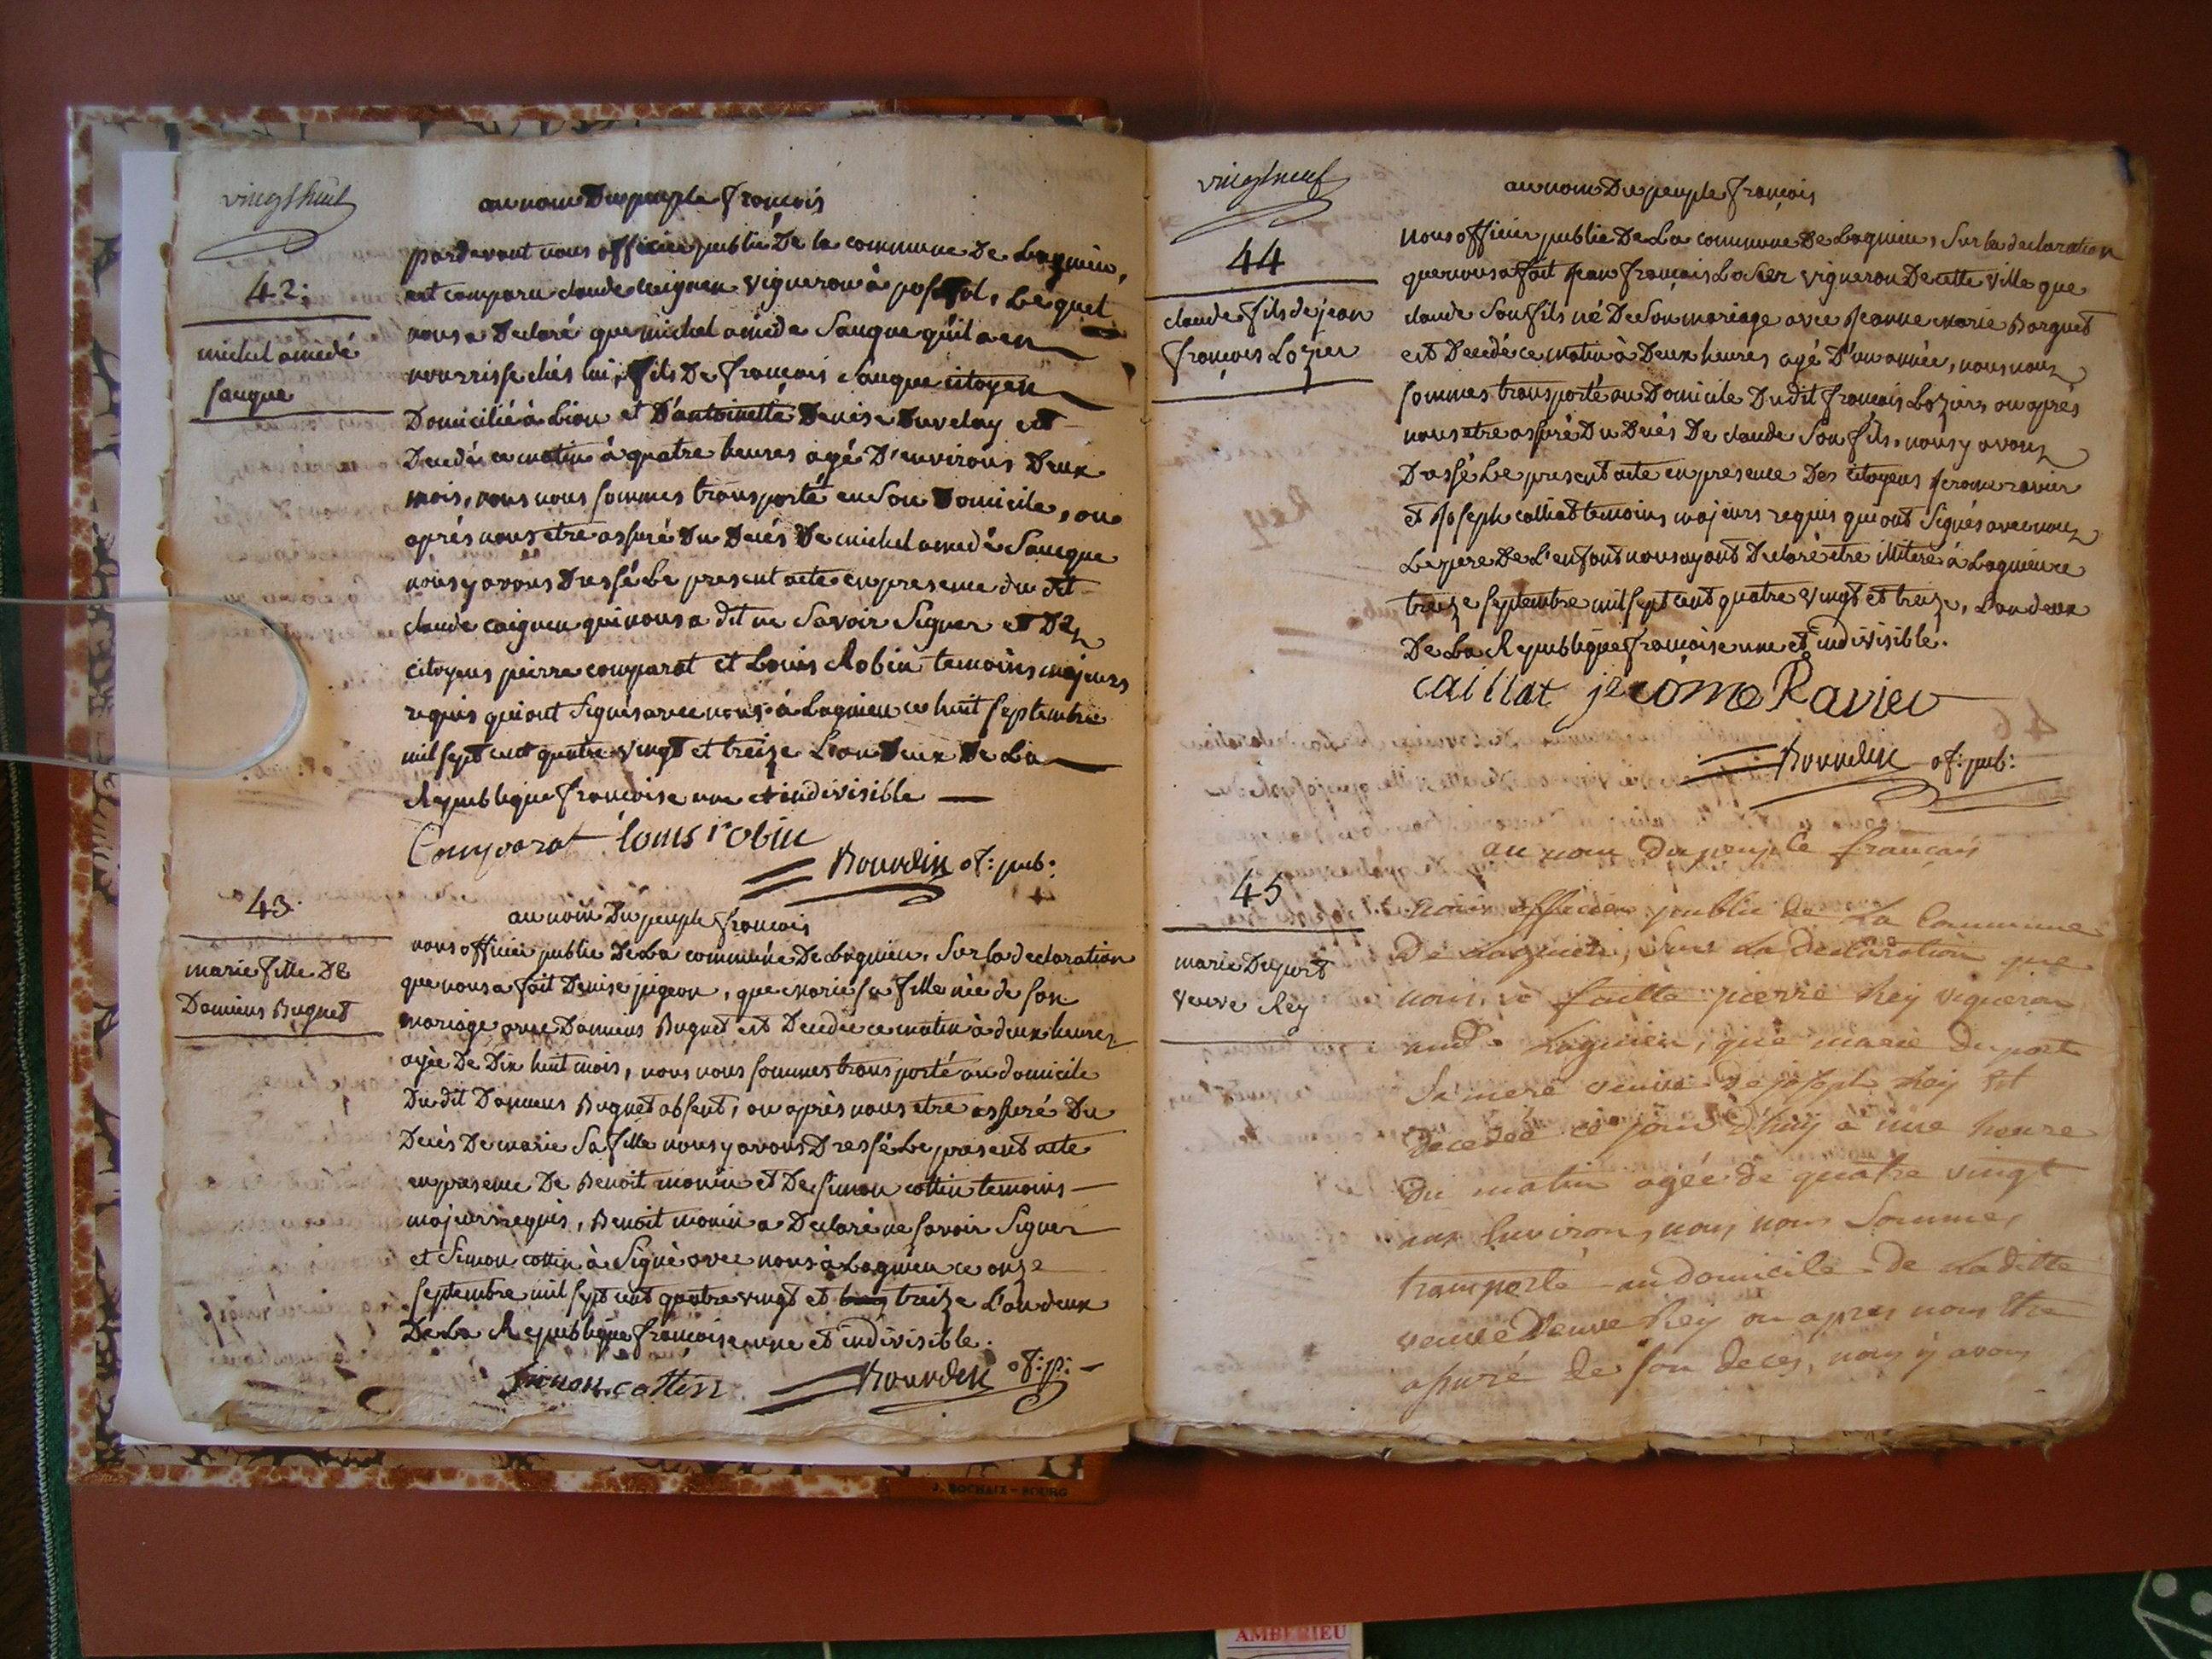 vingt huit
au nom Du peuple françois
42.
michel amédé
sauque
pardevant nous officier public De la commune De Lagnieu,
est comparu claude caignen vigneron à posafol, Lequel
nous a Declaré que michel amédé Sauque qu'il a en
nourrisse chés lui, fils De françois Sauque citoyen
Domicilié à Lion et D'antoinette Denise Duvelay est
Decedé ce matin à quatre heures agé D'environs Deux
mois, nous nous sommes transporté en Son Domicile, ou
aprés nous etre assuré Du Decés De michel amedé Sauque
nous y avons Dressé Le present acte en presence du dit
claude caignen qui nous a dit ne Savoir Signer et Des
citoyens pierre comparat et Louis Robin temoins majeurs
requis qui ont Signés avec nous à Lagnieu ce huit septembre
mil sept cent quatre vingt et treize L'an Deux De La
Republique françoise une et indivisible
Comparat louis robin
Bourdin of: pub:
43.
marie fille De
Damiens Bugnet
au nom Du peuple françois
nous officier public De La commune De Lagnieu, Sur la declaration
que nous a fait Denise pigeon, que marie sa fille née de son
mariage avec Damiens Bugnet est Decedée ce matin à deux heures
agée De Dix huit mois, nous nous sommes transporté au domicile
Du dit Damiens Bugnet absent, ou aprés nous etre assuré Du
Decés De marie Sa fille nous y avons Dressé Le present acte
en presence De Benoit monin et De Simon cottin temoins
majeurs requis, Benoit monin a Declaré ne savoir Signer
et Simon cottin à Signé avec nous à Lagnieu ce onze
septembre mil sept cent quatre vingt et treize L'an deux
De La Republique françoise une et indivisible.
Simon cottin Bourdin of: p:
vingt neuf
au nom Du peuple françois
44
claude fils de jean
françois Lozier
nous officier public De La commune De Lagnieu, Sur la declaration
que nous a fait Jean françois Lozier vigneron De cette ville que
claude Son fils né De Son mariage avec Jeanne marie Borgnet
est Decedé ce matin à Deux heures agé D'un année, nous nous
sommes transporté au Domicile Du dit françois Lozier, ou aprés
nous etre assuré Du Decés De claude Son fils, nous y avons
Dressé Le present acte en presence Des citoyens Jerome ravier
et Joseph calliat temoins majeurs requis qui ont Signés avec nous
Le pere De L'enfant nous ayant Declaré etre illiteré à Lagnieu ce
treize septembre mil sept cent quatre vingt et treize, L'an deux
De La Republique françoise une et indivisible.
caillat jerome Ravier
Bourdin of: pub:
au nom du peuple français
45
marie Duport
veuve Rey
nous officier public de La Commune
De Lagnieu, Sur La declaration que
nous à faitte pierre Rey vigneron
au d. Lagnieu, que marie duport
Sa mere veuve de joseph Rey est
decedée ce jourd'huy à une heure
du matin agée de quatre vingt
ans Environs, nous nous Sommes
transporté au domicile de Laditte
veuve Rey ou apres nous être
assuré de son decès, nous y avons
J. ROCHAIX - BOURG
AMBERIEU